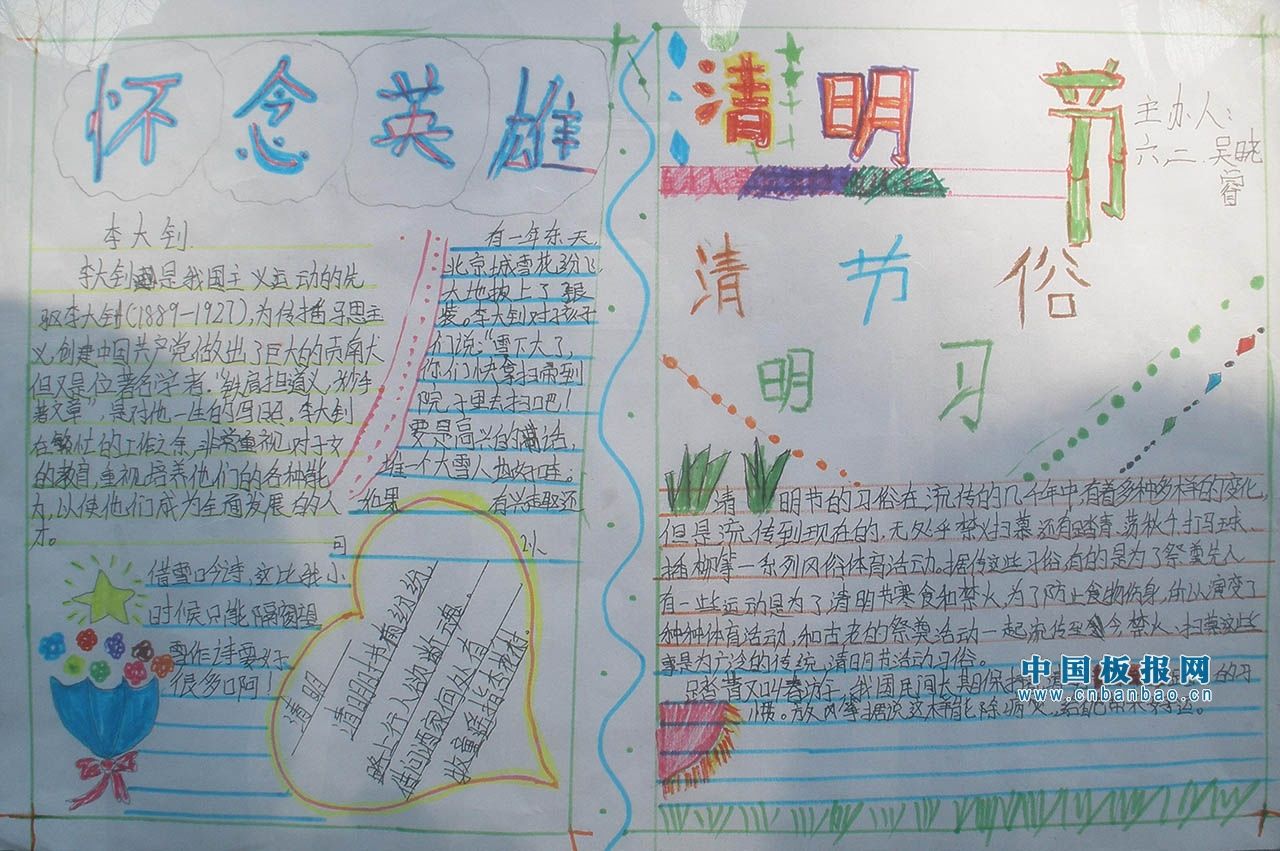 怀念英雄
李大钊
李大钊是我国主义运动的先
驱李大钊(1889-1927),为传播马思主
义,创建中国共产党做出了巨大的贡南大
但又是位著名学者."铁肩担道义,妙手
著文章",是对他一生的写照。李大钊
在繁忙的工作之余,非常重视对子女
的教育,重视培养他们的各种能
力,以使他们成为全面发展的人
才。
有一年冬天,
北京城雪花纷飞
大地披上了银
装。李大钊对孩子
们说:"雪下大了,
你们快拿扫帚到
院子里去扫吧!
要是高兴的话,
堆一个大雪人也好哇。
如果有兴趣还
可以
借雪吟诗,这比我小
时候只能隔窗望
雪作诗要好
很多啊!
清明
清明时节雨纷纷,
路上行人欲断魂。
借问酒家何处有
牧童遥指杏花村.
清明节
主办人:
六二 吴晓
睿
清明节习俗
清明节的习俗在流传的几千年中,有着多种多样的变化,
但是流传到现在的,无外乎禁火扫墓还有踏青 荡秋千打马球、
插柳等一系列风俗体育活动.据传这些习俗有的是为了祭奠先人
有一些运动是为了清明节寒食和禁火,为了防止食物伤身,所以演变了
种种体育活动,和古老的祭奠活动一起流传至今.禁火、扫墓这些
事是为亡冷的传统,清明节活动习俗。
踏青又叫春游,我国民间长期保持 的习
惯。
中国板报网
www.cnbanbao.cn